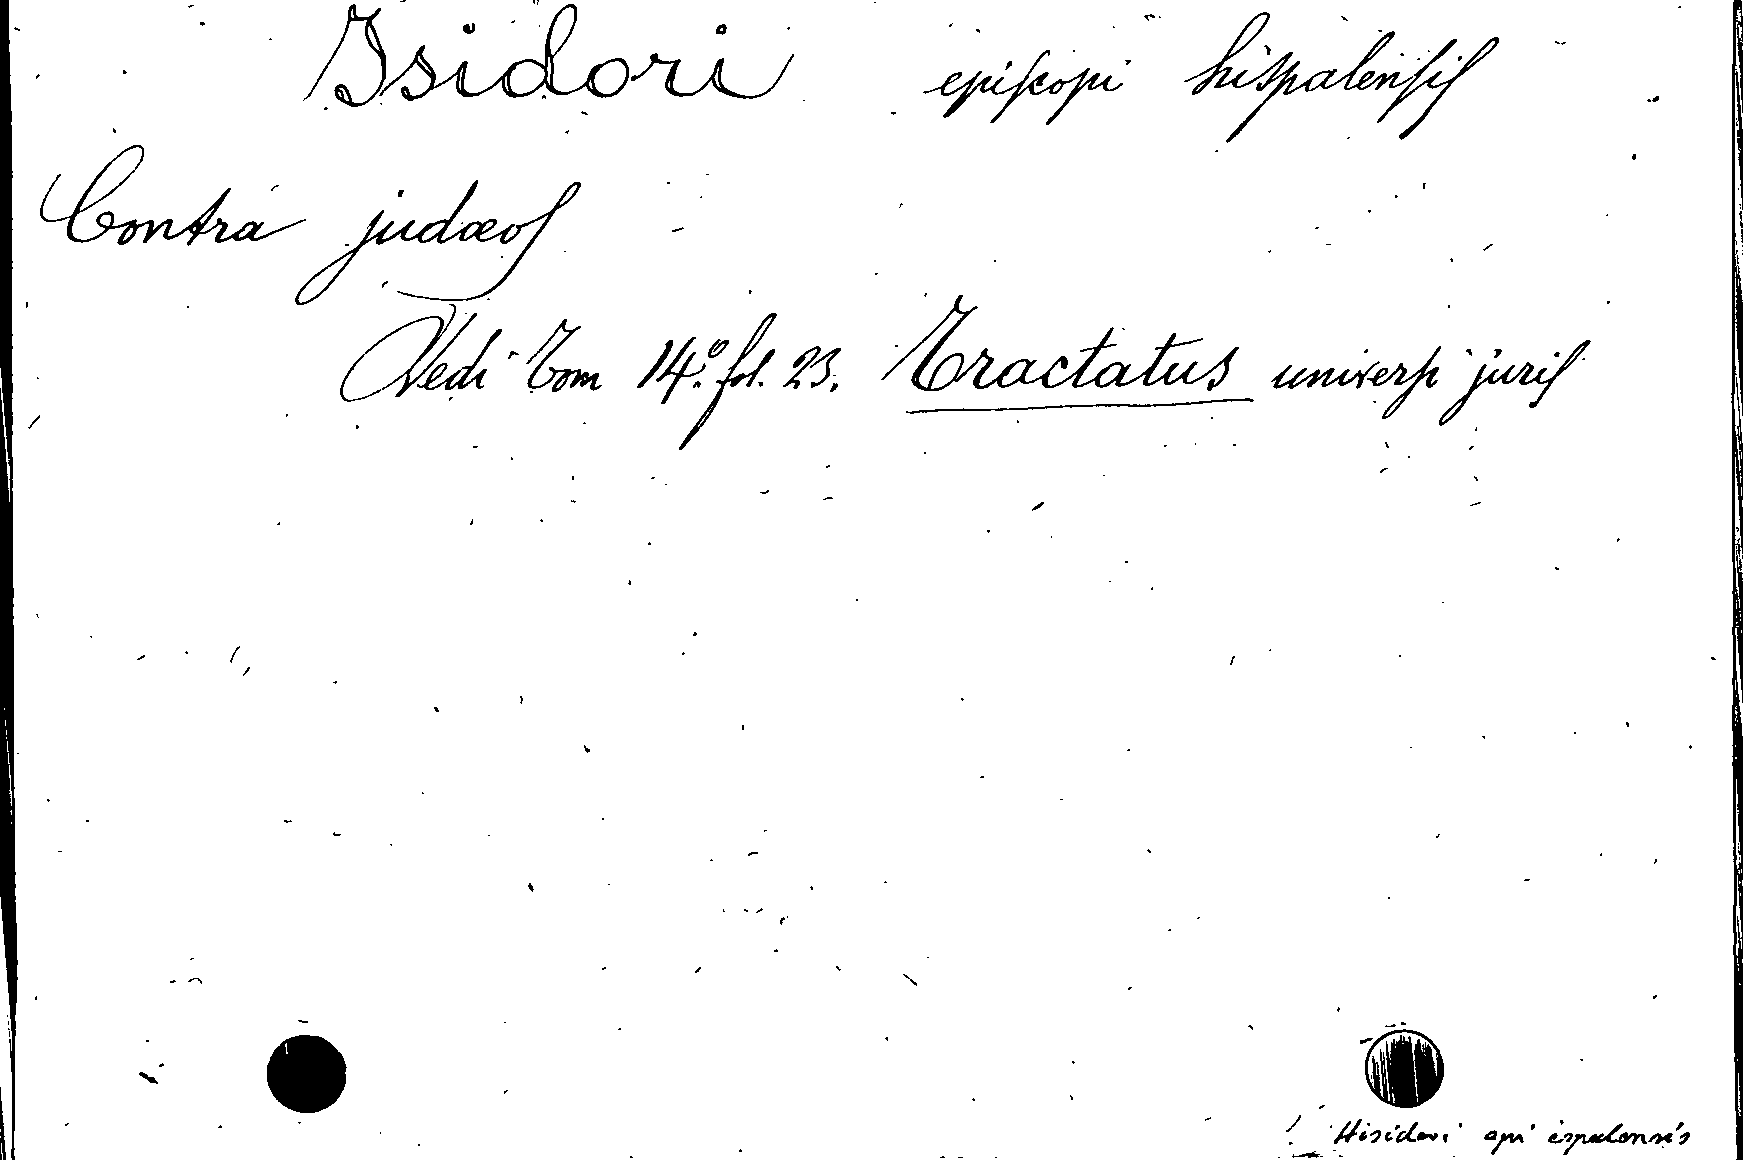 Isidori episcopi hispalensis
Contra judæos
Vedi Tom 14.º fol. 23. Tractatus universi juris
Hisidori epi ispalensis